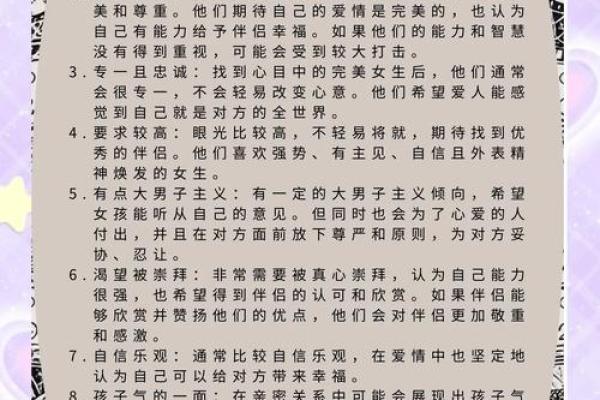 美和尊重。他们期待自己的爱情是完美的，也认为
自己有能力给予伴侣幸福。如果他们的能力和智慧
没有得到重视，可能会受到较大打击。
3.专一且忠诚：找到心目中的完美女生后，他们通常
会很专一，不会轻易改变心意。他们希望爱人能感
觉到自己就是对方的全世界。
4.要求较高：眼光比较高，不轻易将就，期待找到优
秀的伴侣。他们喜欢强势、有主见、自信且外表精
神焕发的女生。
5.有点大男子主义：有一定的大男子主义倾向，希望
女孩能听从自己的意见。但同时也会为了心爱的人
付出，并且在对方面前放下尊严和原则，为对方妥
协、忍让。
6.渴望被崇拜：非常需要被真心崇拜，认为自己能力
很强，也希望得到伴侣的认可和欣赏。如果伴侣能
够欣赏并赞扬他们的优点，他们会对伴侣更加敬重
和感激。
7.自信乐观：通常比较自信乐观，在爱情中也坚定地
认为自己可以给对方带来幸福。
8.孩子气的一面：在亲密关系中可能会展现出孩子气